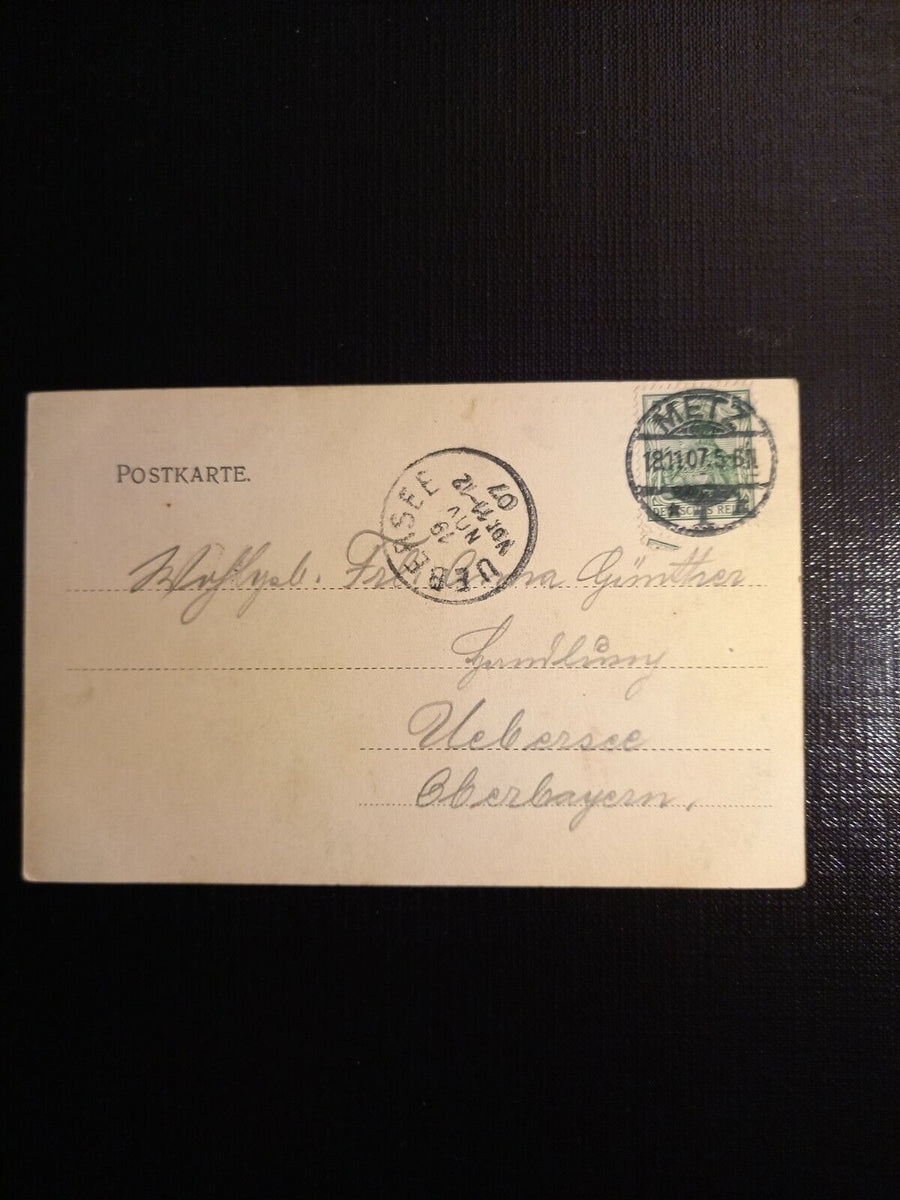 POSTKARTE.
METZ
18.11.07. 5-6N
DEUTSCHES REICH
UEBERSEE
19
NOV
Vor. 11-12
07
Wohlgeb. Günther
Handlung
Uebersee
Oberbayern.